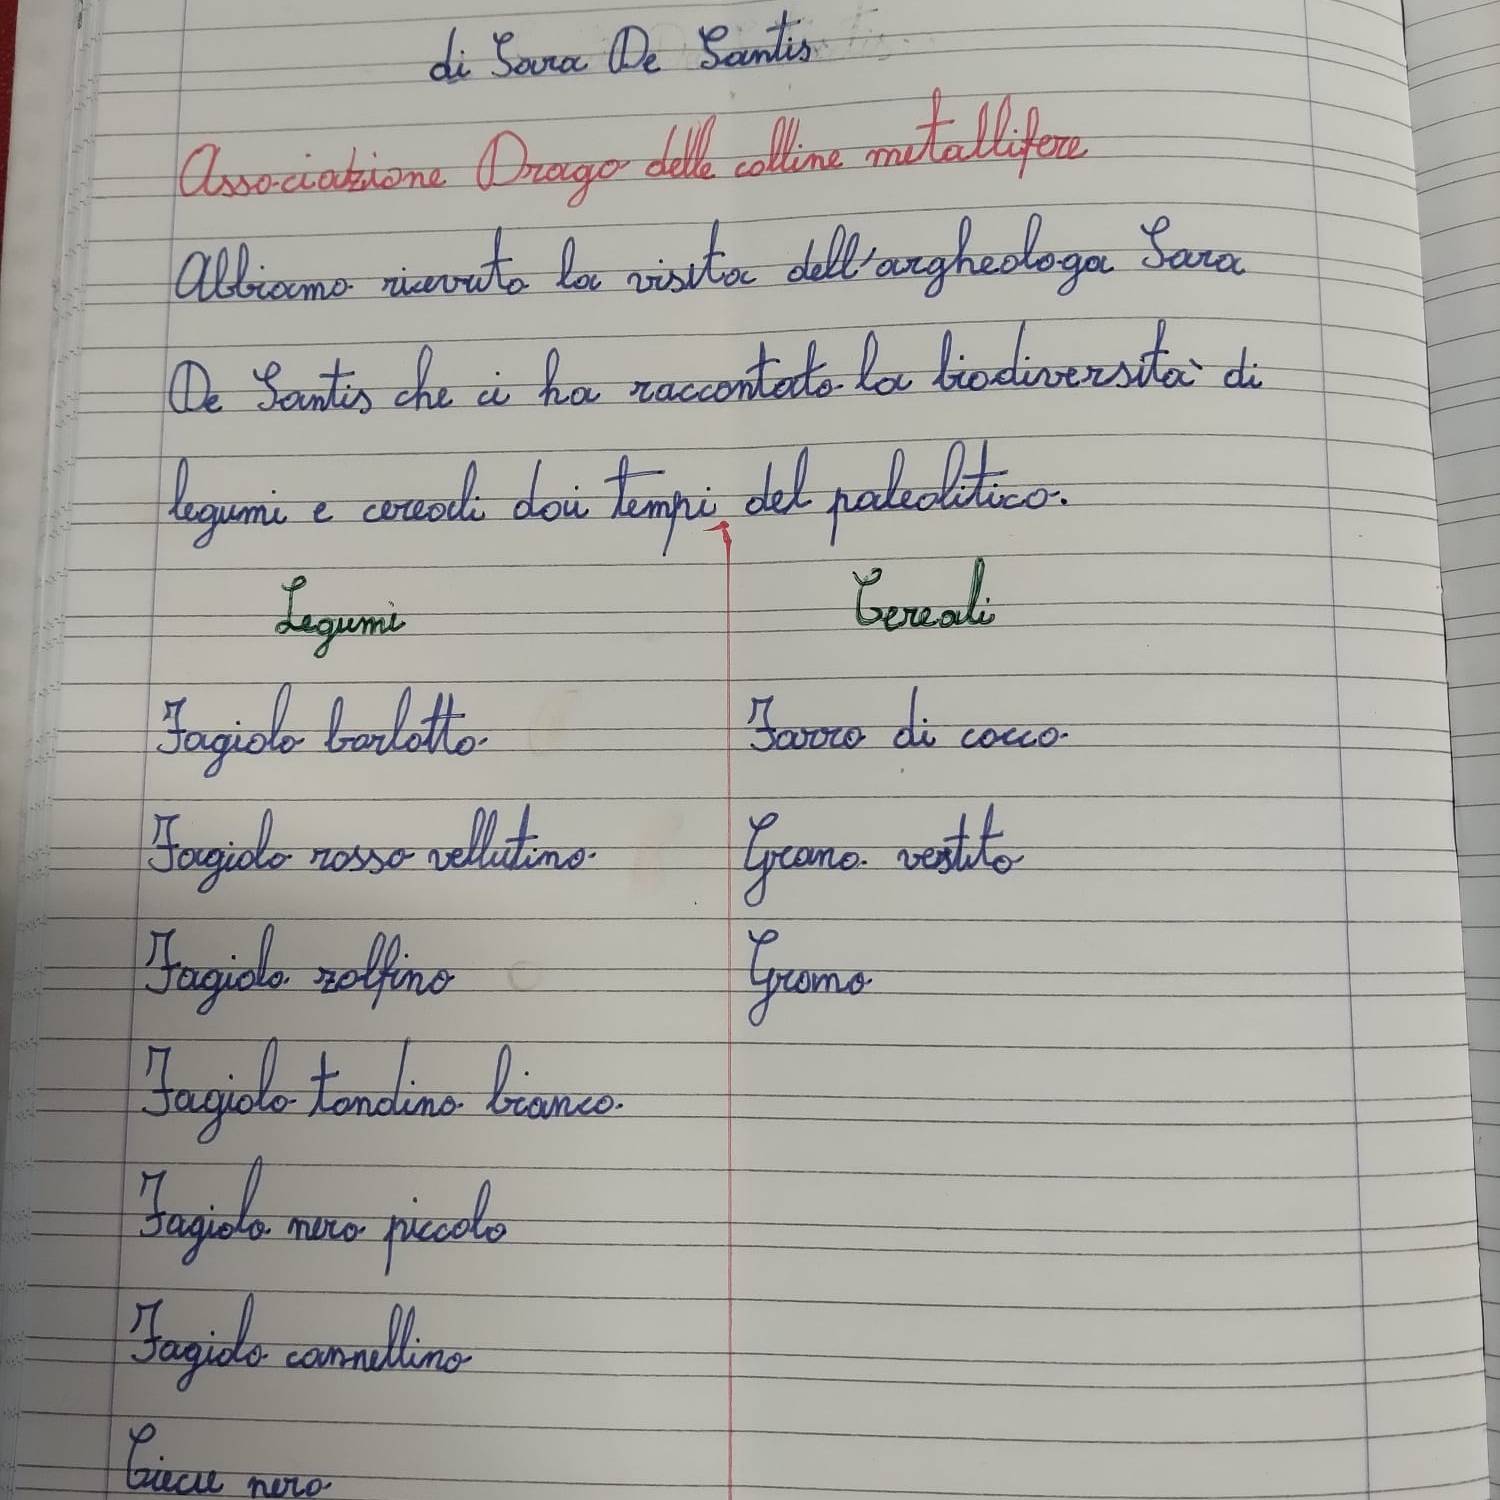 di Sara De Santis
Associazione Drago delle colline metallifere
Abbiamo ricevuto la visita dell'argheologa Sara
De Santis che ci ha raccontato la biodiversità di
legumi e cereali dai tempi del paleolitico.
Legumi Cereali
Fagiolo borlotto Farro di cocco
Fagiolo rosso vellutino Grano vestito
Fagiolo zolfino Grano
Fagiolo tondino bianco
Fagiolo nero piccolo
Fagiolo cannellino
nero